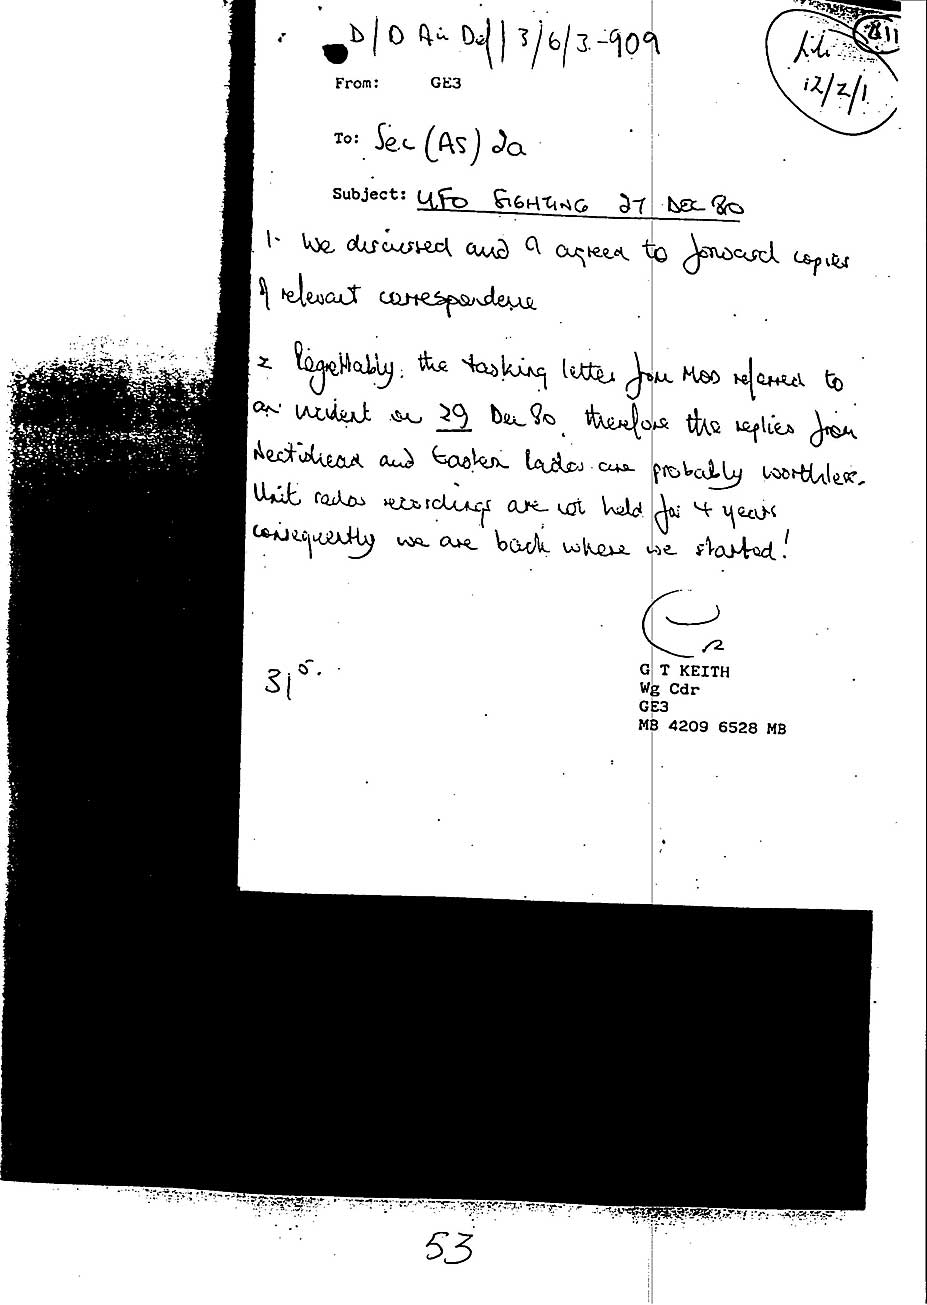 D/D Air Def/3/6/3-909
811
file
12/2/1
From: GE3
To: Sec (AS) 2a
Subject: UFO SIGHTING 27 DEC 80
1. We discussed and I agreed to forward copies
of relevant correspondence
2 Regrettably, the tasking letter from MOD referred to
an incident on 29 Dec 80, therefore the replies from
Neatishead and Eastern Radar are probably worthless.
Unit radar recordings are not held for 4 years
consequently we are back where we started!
G T KEITH
Wg Cdr
GE3
MB 4209 6528 MB
53